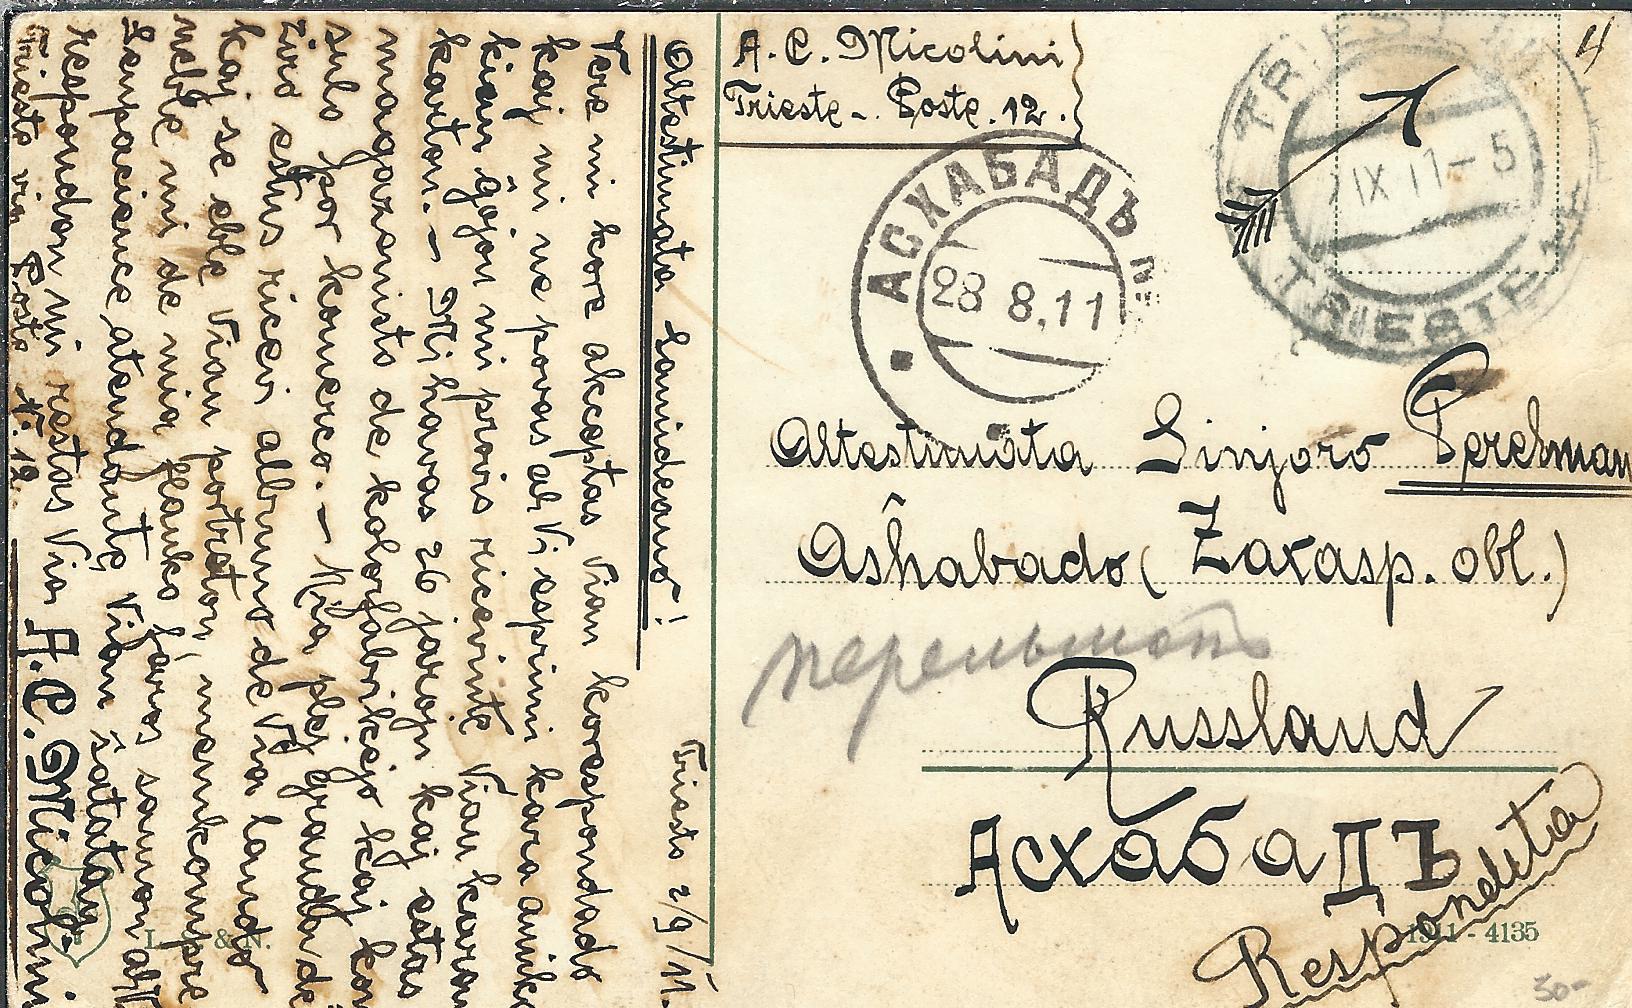 A. C. Nicolini
Trieste - Poste. 12.
4
TRIEST
IX 11 - 5
TRIESTE
АСХАБАДЪ
28 8.11
Altestimata Sinjoro Perelman
Aŝhabado (Zakasp. obl.)
перельманъ
Russland
Асхабадъ
Respondita
1911 - 4135
30-
L. & N.
Triesto 2/9/11.
Altestimata Samideano!
Tere mi kore akceptas Vian korespondado
kaj mi ne povas al Vi esprimi kara amiko
kian ĝojon mi provis ricevinte Vian karan
karton. - Mi havas 26 jarojn kaj estas
magazenisto de kolorfabrikejo kaj kon
sulo por komerco. - Mia plej granda de
ziro estus ricevi albumo de Via lando
kaj se eble Vian portreton, nenkompre
neble mi de mia flanko faros samon al Vi
Senpacience atendante Vian ŝatatan
respondon mi restas Via A. C. Nicolini
Triesto via Posto N. 12.